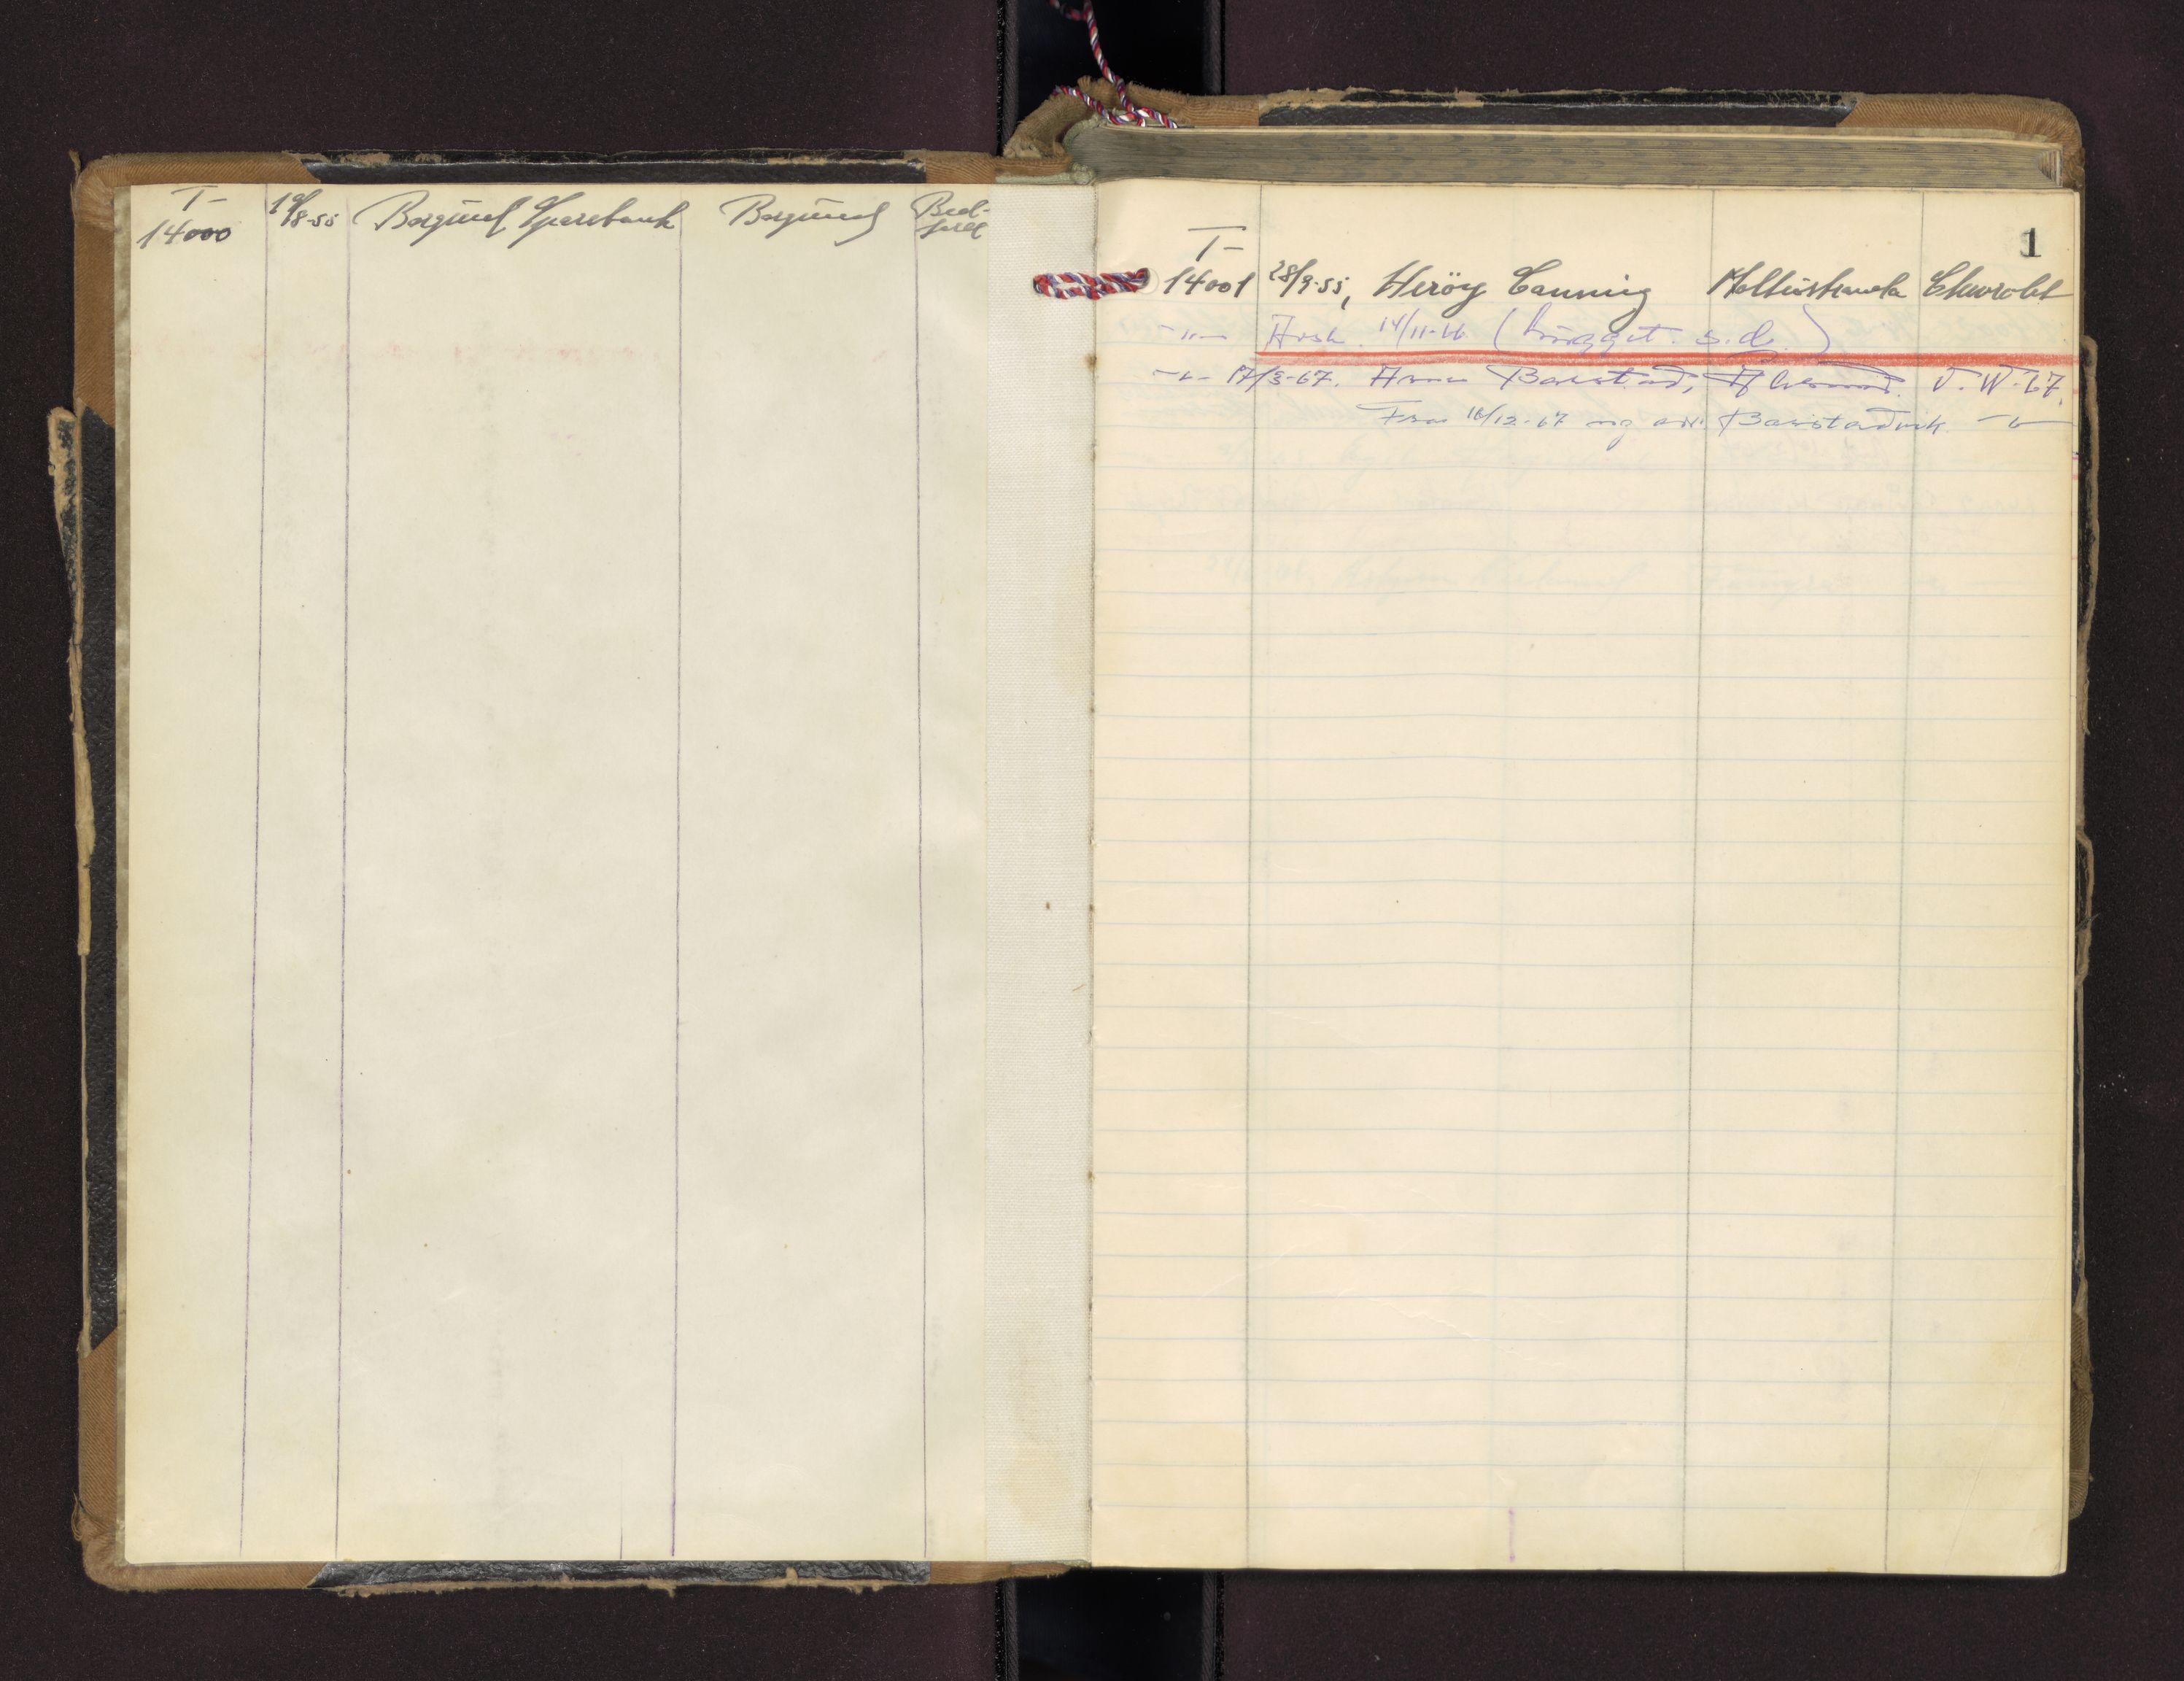 T-
14000 19/8-55 Borgund Sparebank Borgund Bed-
ford
1
T-
14001 28/9-55, Herøy Canning Moltustranda Chevrolet
-"- Avsk. 14/11-66 (hugget. s.d.)
-"- 17/3-67. Arne Barstad, V.W-67.
Fra 16/12-67 ny adr. Barstadvik -"-